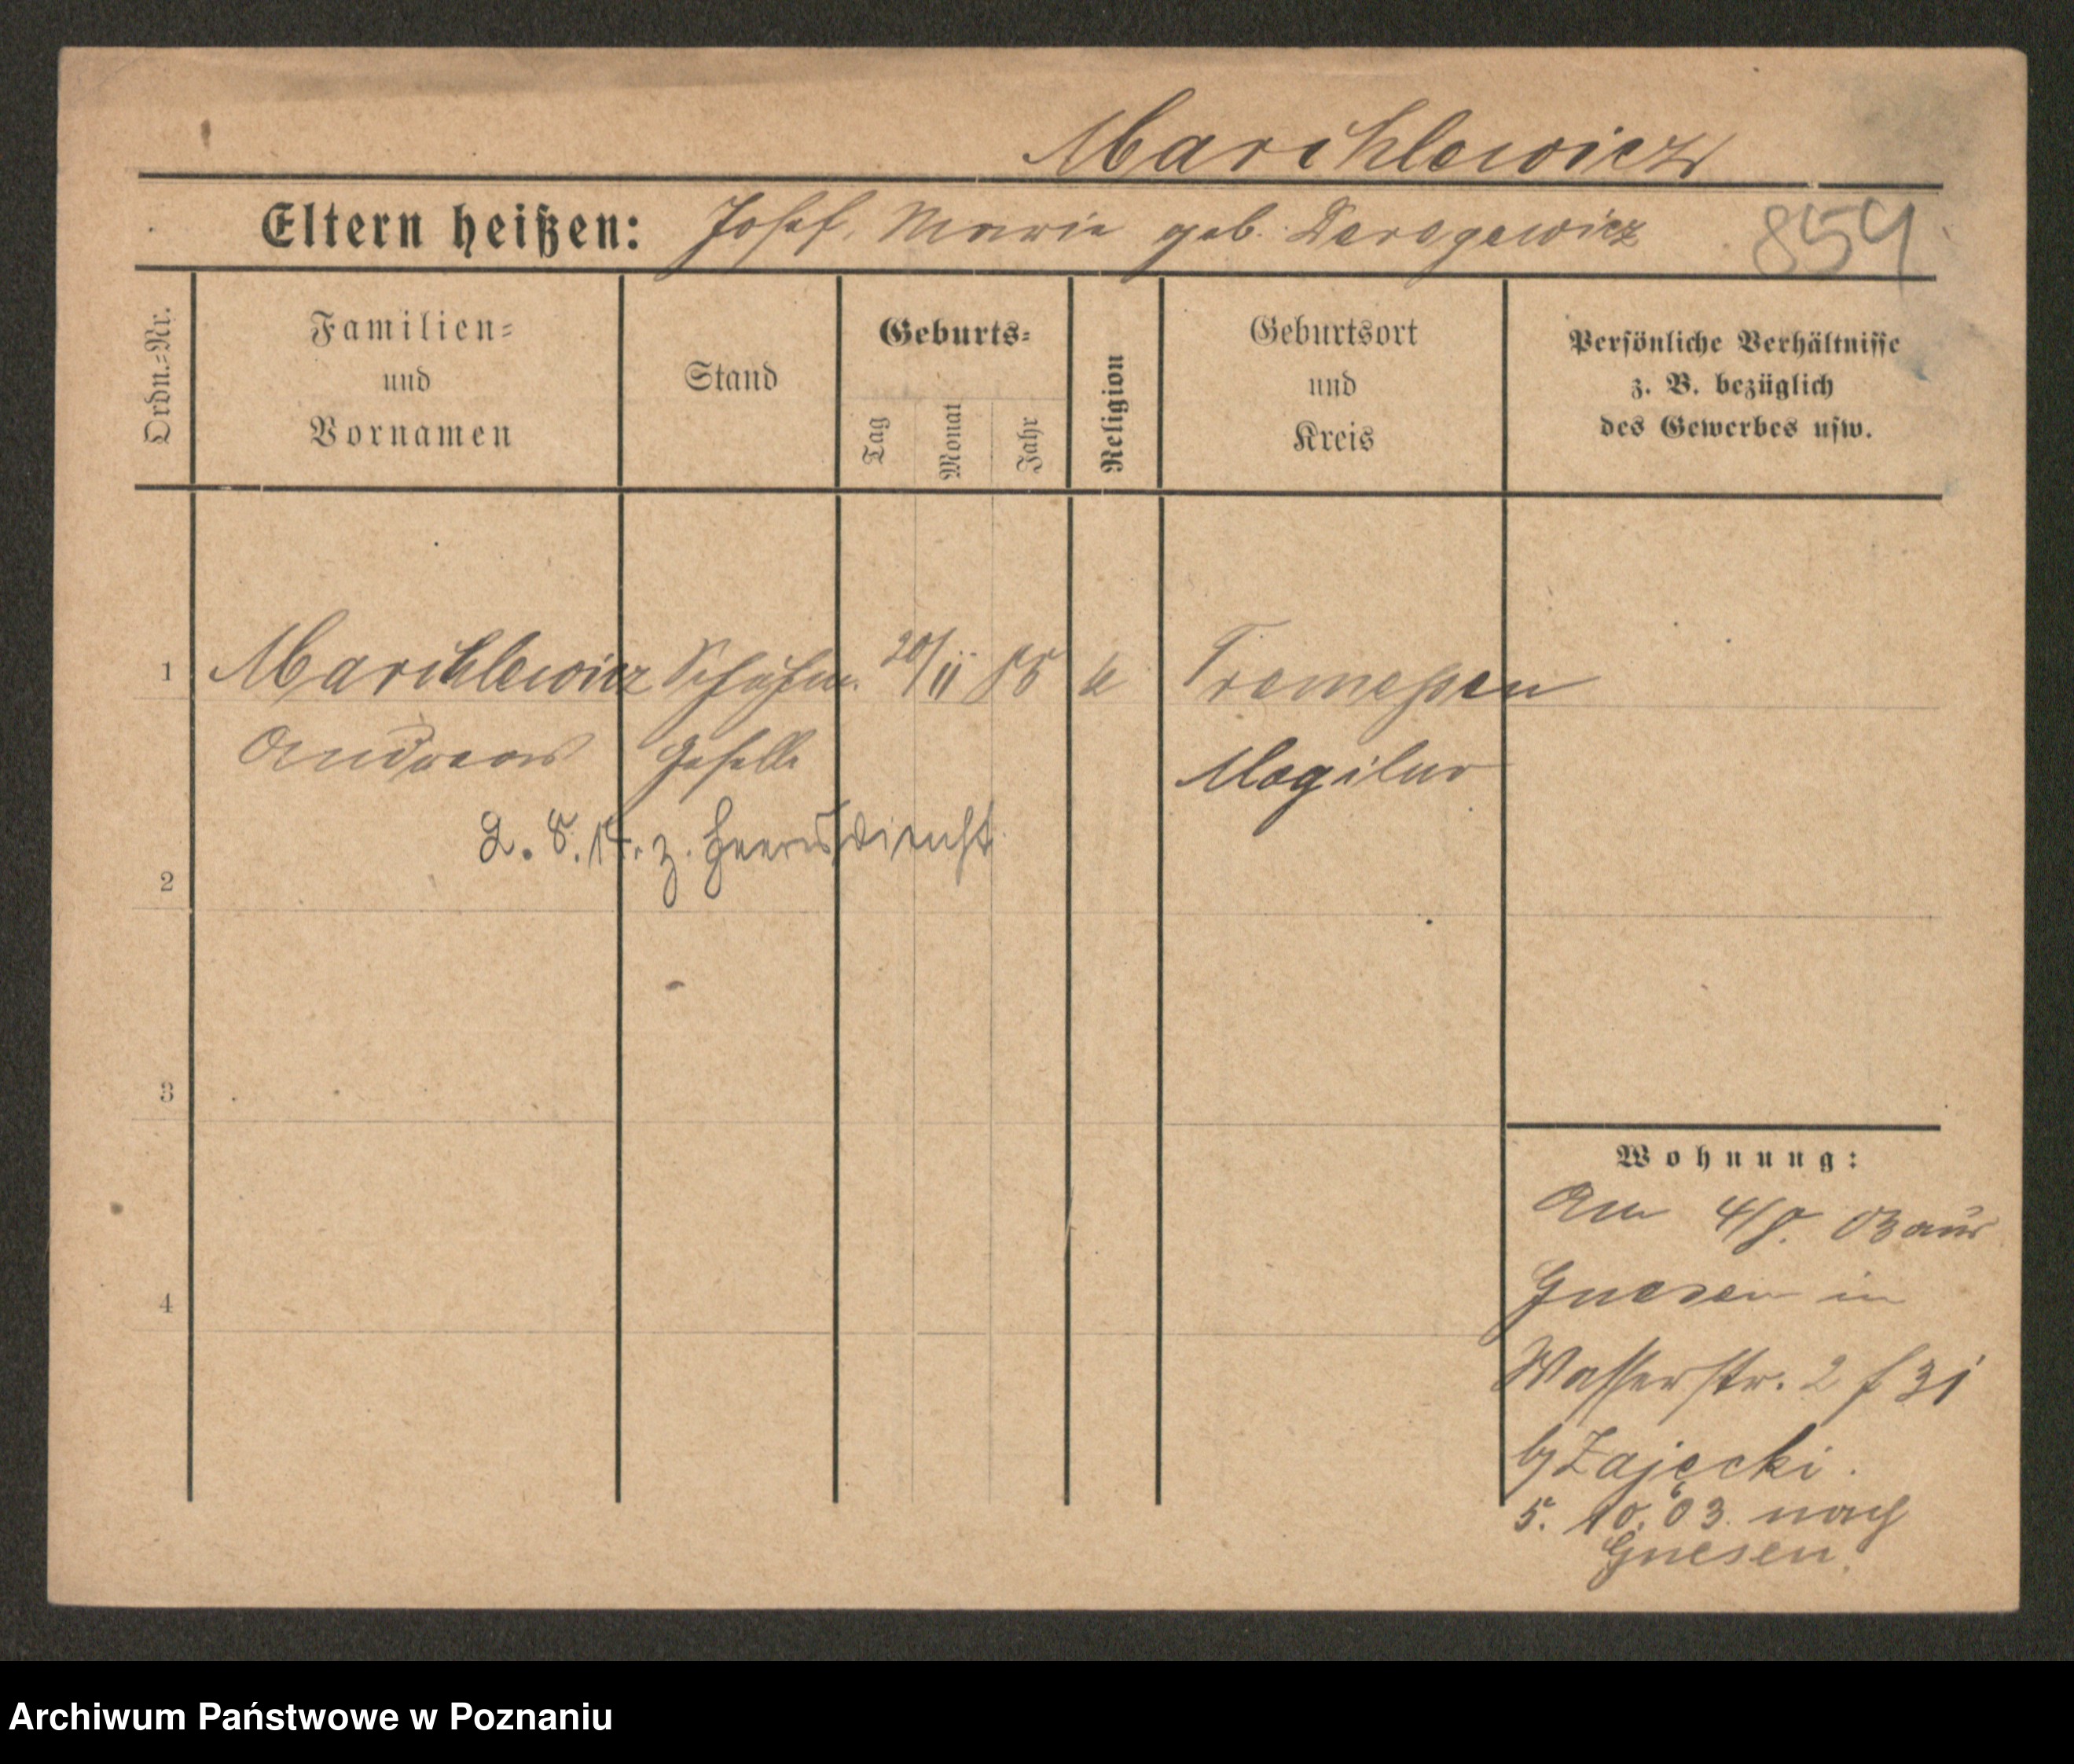 Marchlewicz
Eltern heißen: Josef, Marie geb. Deregewicz
854
Ordn.=Nr.
Familien=
und
Vornamen
Stand
Geburts=
Tag
Monat
Jahr
Religion
Geburtsort
und
Kreis
Persönliche Verhältnisse
z. B. bezüglich
des Gewerbes usw.
1 Marchlewicz Schuhm. 20/11 85 k Tremessen
Andreas Geselle Mogilno
2. 8. 14. z. Heeresdienst
2
3
4
Wohnung:
Am 4/8. 03 aus
Gnesen in
Wasserstr. 2 f 31
b/ Zajęcki.
5. 10. 03. nach
Gnesen.
Archiwum Państwowe w Poznaniu